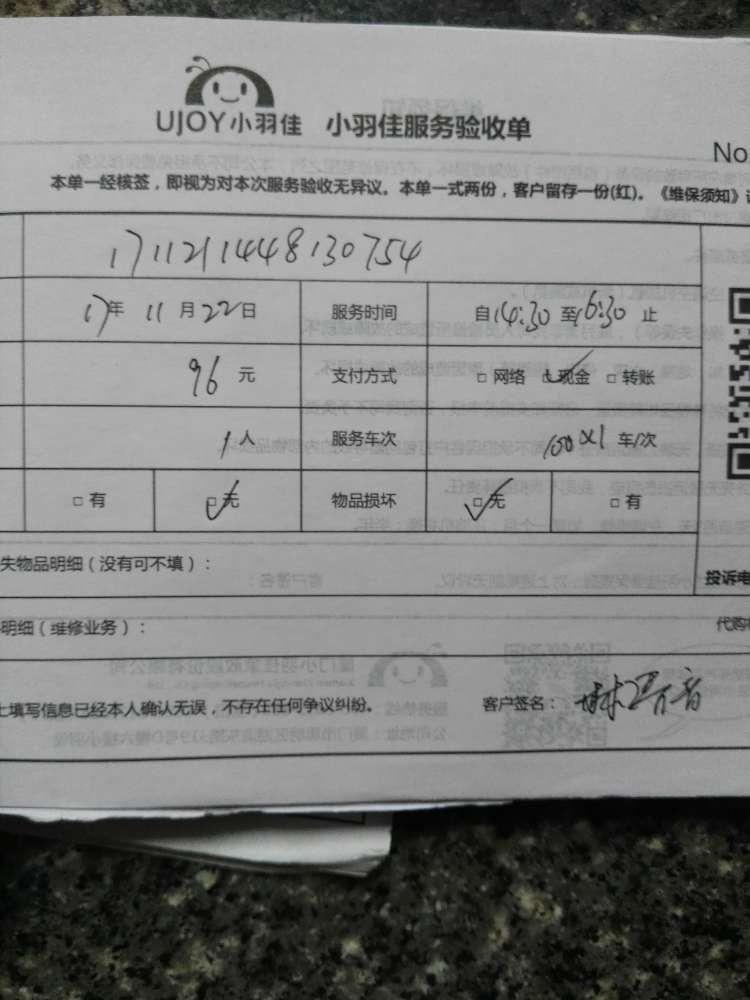 UJOY小羽佳 小羽佳服务验收单
No
本单一经核签，即视为对本次服务验收无异议。本单一式两份，客户留存一份(红)。《维保须知》
1711211448130754
17年 11月22日 服务时间 自14:30至16:30止
96元 支付方式 □ 网络 □现金 □ 转账
1人 服务车次 100×1 车/次
□ 有 □无 物品损坏 □ 无 □ 有
失物品明细（没有可不填）：
投诉电
明细（维修业务）：
代购
上填写信息已经本人确认无误，不存在任何争议纠纷。 客户签名：